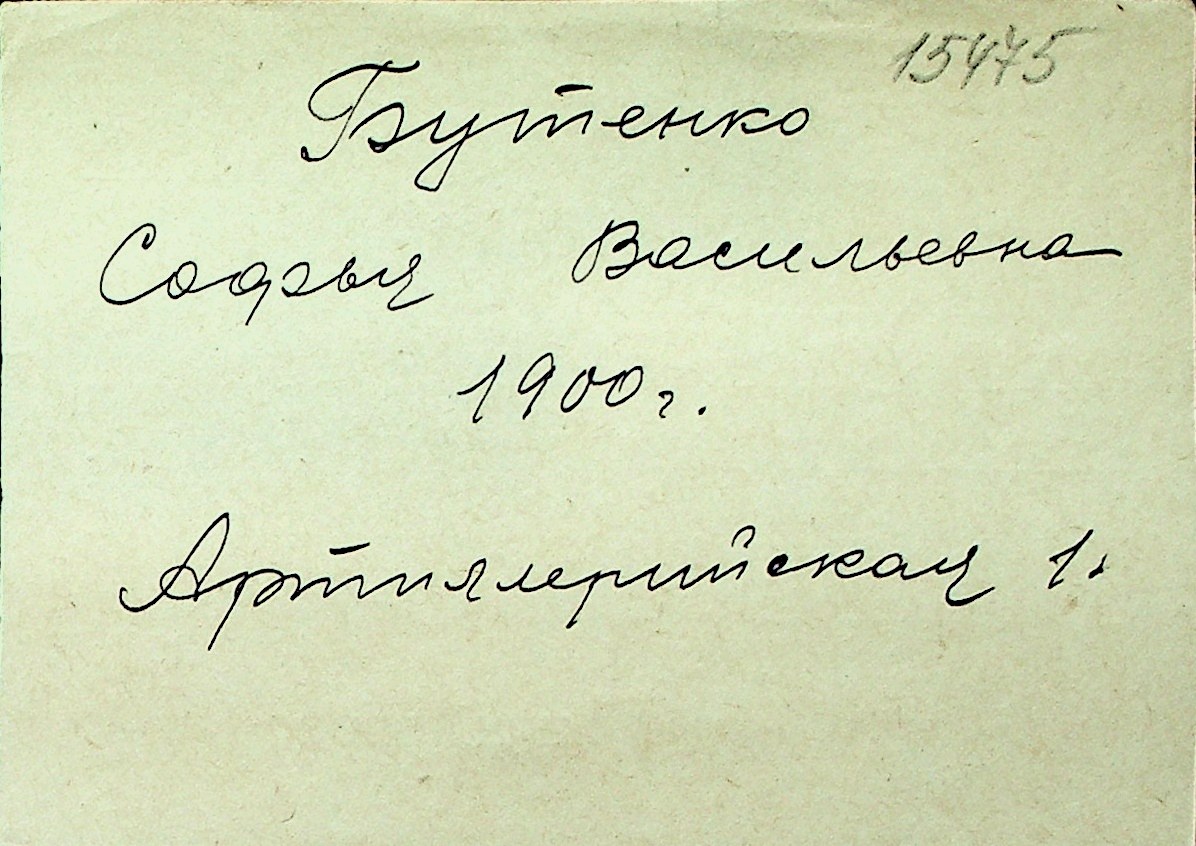 15475
Бутенко
Софья Васильевна
1900г.
Артиллерийская 1.